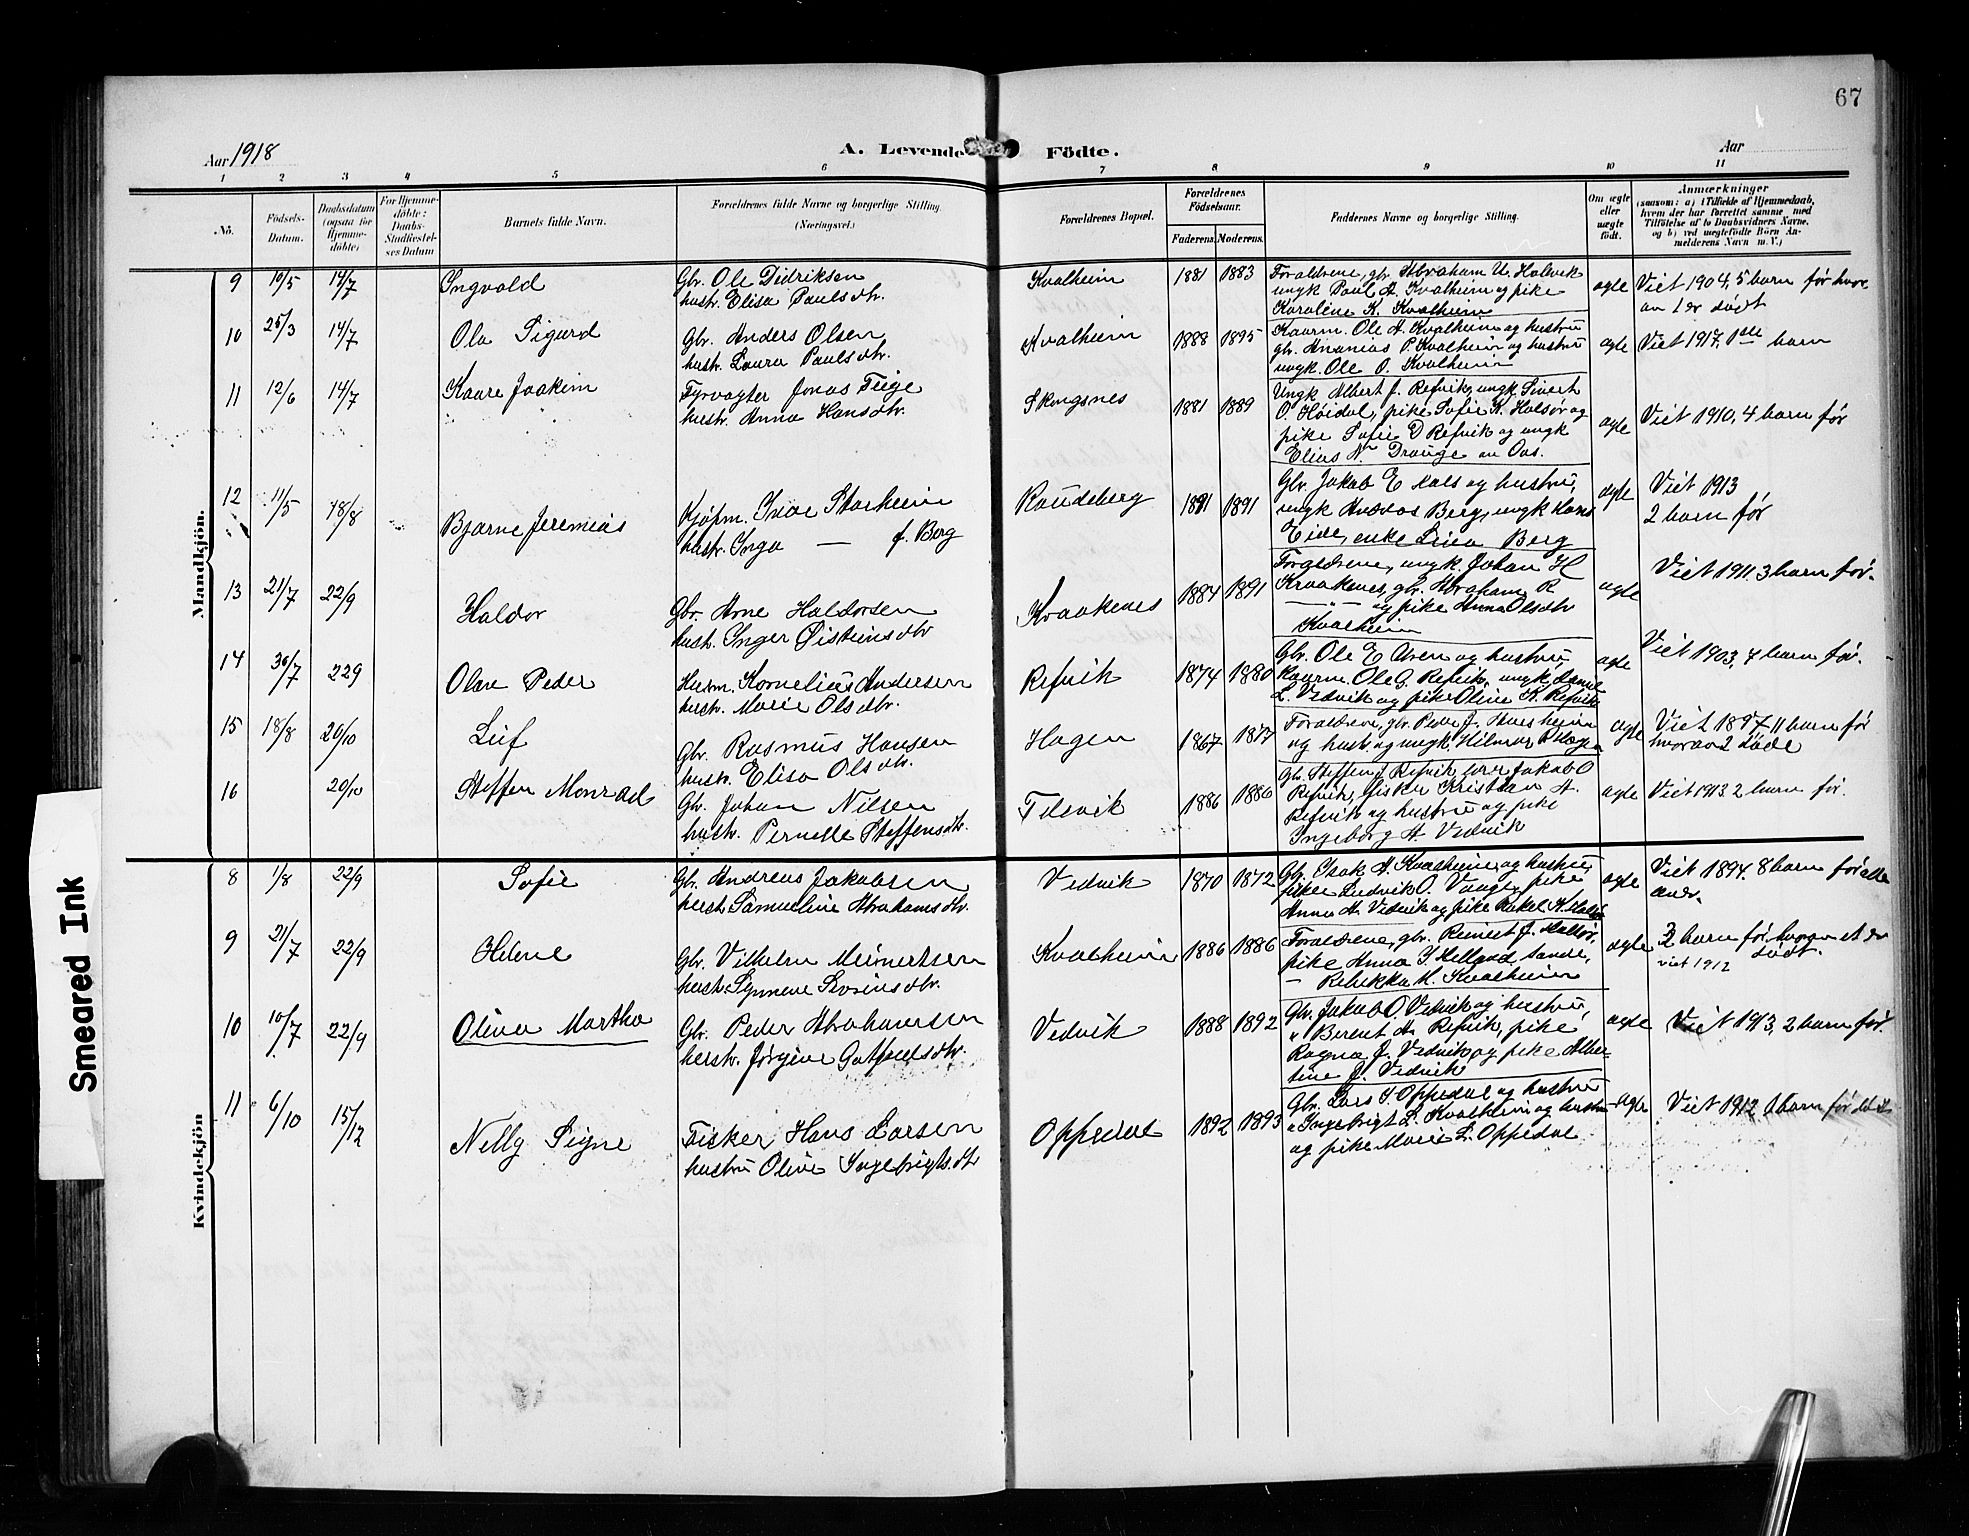 67
Aar 1918
A. Levende Födte.
Aar
1 2 3 4 5 6 7 8 9 10 11
No.
Födsels-Datum.
Daabsdatum (ogsaa for Hjemmedöbte)
For Hjemmedöbte: Daabs-Stadfæstelses Datum
Barnets fulde Navn.
Forældrenes fulde Navne og borgerlige Stilling. (Næringsvei.)
Forældrenes Bopæl.
Forældrenes Födselsaar.
Faderens. Moderens.
Faddernes Navne og borgerlige Stilling.
Om ægte eller uægte födt.
Anmærkninger
(saasom: a) i Tilfælde af Hjemmedaab,
hvem der har forrettet samme med
Tilföielse af to Daabsvidners Navne,
og b) ved uægtefödte Börn An-
melderens Navn m. V.)
Mandkjön.
9 10/5 14/7 Ingvald
Gbr. Ole Didriksen
hustr. Elisa Paulsdtr.
Kvalheim 1881 1883
Foraldrene, gbr. Abraham U. Halsvik
ungk Paul A. Kvalheim og pike
Karoline K. Kvalheim
agte
Viet 1904, 5 barn før hvor
av 1 er dødt
10 25/3 14/7 Ola Sigurd
Gbr. Anders Olsen
hustr. Laura Paulsdtr.
Kvalheim 1888 1895
Kaarm. Ole A. Kvalheim og hustru
gbr. Ananias P. Kvalheim og hustru
ungk. Ole O. Kvalheim
agte
Viet 1917, 1ste barn
11 12/6 14/7 Kaare Joakim
Fyrvogter Jonas Teige
hustr. Anna Hansdtr.
Skongsnes 1881 1889
Ungk Albert J. Refvik, ungk Sivert
O Høidal, pike Sofie K. Halsør og
pike Sofie D Refvik og ungk
Elias N. Drauge av Oos.
agte
Viet 1910, 4 barn før
12 11/5 18/8 Bjarne Jeremias
Kjøpm. Ivar Storheim
hustr. Inga — f. Berg
Raudeberg 1891 1891
Gbr. Jakob E Hals og hustru,
ungk Andreas Berg, ungk Hans
Eide, enke Lina Berg
agte
Viet 1913
2 barn før
13 21/7 22/9 Haldor
Gbr. Arne Haldorsen
hust. Inger Øisteinsdtr
Kraakenes 1884 1891
Forældrene, ungk. Johan H
Kraakenes, gbr. Abraham R
— " — og pike Anna Olsdtr
Kvalheim
agte
Viet 1911. 3 barn før.
14 30/7 229 Olav Peder
Husm. Kornelius Andersen
hustr. Marie Olsdtr.
Refvik 1874 1880
Gbr. Ole E Uren og hustru,
kaarm. Ole G. Refvik, ungk
L. Vedvik og pike Oline K. Refvik
agte
Viet 1903, 4 barn før.
15 18/8 20/10 Leif
Gbr. Rasmus Hansen
hustr. Elisa Olsdtr.
Hagen 1867 1877
Foraldrene, gbr. Peder J.
og hustr. og ungk. Hilmar R Hagen
agte
Viet 1897 11 barn før
hvorav 2 døde
16 20/10 Steffen Monrad
Gbr. Johan Nilsen
hustr. Pernelle Steffensdtr.
Tilsvik 1886 1886
Gbr. Steffen J. Refvik, Jakob O
Refvik, fisker Kristian A.
Refvik og hustru og pike
Ingeborg A Vedvik
agte
Viet 1913 2 barn før.
Kvindekjön
8 1/8 22/9 Sofie
Gbr. Andreas Jakobsen
hustr Samueline Abrahamsdtr.
Vedvik 1870 1872
Gbr. Isak A. Kvalheim og hustru,
pike Ludvik O. Vaage, pike
Anna A. Vedvik og pike Rakel K. Halsør
agte
Viet 1894. 8 barn før alle
lever.
9 21/7 22/9 Helene
Gbr. Vilhelm Meinertsen
hustr. Synneve Severinsdtr.
Kvalheim 1886 1886
Foraldrene, gbr. Reinert J. Halsør,
pike Anna J. Hellgod Sandø,
— Rebekka M. Kvalheim
agte
3 barn før, hvorav et er
viet 1912 dødt.
10 10/7 22/9 Oliva Martha
Gbr. Peder Abrahamsen
hustr. Jørgine Gotfredsdtr.
Vedvik 1888 1892
Gbr. Jakob O. Vedvik og hustru,
" Berent A. Refvik, pike
Ragna J. Vedvik, og pike Alber-
tine J. Vedvik
agte
Viet 1913, 2 barn før.
11 6/10 15/12 Nelly Signe
Fisker Hans Larsen
hustru Oline Ingebrigtsdtr
Oppedal 1892 1893
Gbr. Lars J. Oppedal og hustru
" Ingebrigt L. Kvalheim og hustru
og pike Marie L. Oppedal
agte
Viet 1912 1 barn før dødt
Smeared Ink